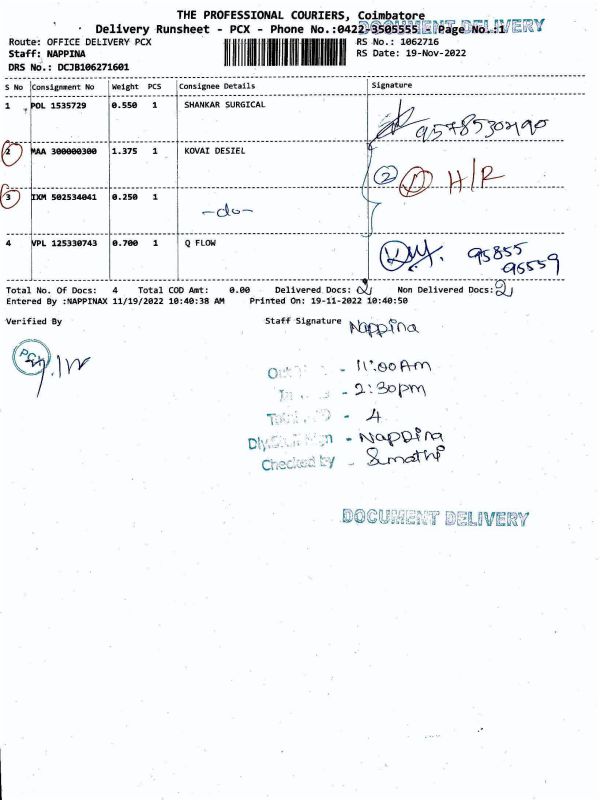 THE PROFESSIONAL COURIERS, Coimbatore
DOCUMENT DELIVERY
Delivery Runsheet - PCX - Phone No.:0422-3505555 Page No.:1
Route: OFFICE DELIVERY PCX RS No.: 1062716
Staff: NAPPINA RS Date: 19-Nov-2022
DRS No.: DCJB106271601
S No Consignment No Weight PCS Consignee Details Signature
1 POL 1535729 0.550 1 SHANKAR SURGICAL
2 MAA 300000300 1.375 1 KOVAI DESIEL
② ① H/R
3 IXM 502534041 0.250 1
-do-
4 VPL 125330743 0.700 1 Q FLOW
95855
95559
Total No. Of Docs: 4 Total COD Amt: 0.00 Delivered Docs: 2 Non Delivered Docs: 2
Entered By :NAPPINAX 11/19/2022 10:40:38 AM Printed On: 19-11-2022 10:40:50
Verified By Staff Signature Nappina
PCX
- 11:00 Am
- 2:30pm
- 4
- Nappina
Checked by - Sumathi
DOCUMENT DELIVERY